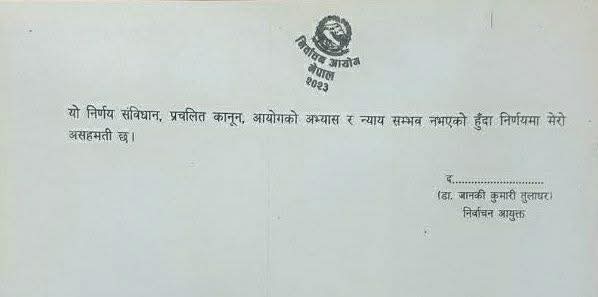 निर्वाचन आयोग
नेपाल
२०२३
यो निर्णय संविधान, प्रचलित कानून, आयोगको अभ्यास र न्याय सम्भव नभएको हुँदा निर्णयमा मेरो
असहमती छ।
द..............................
(डा. जानकी कुमारी तुलाधर)
निर्वाचन आयुक्त